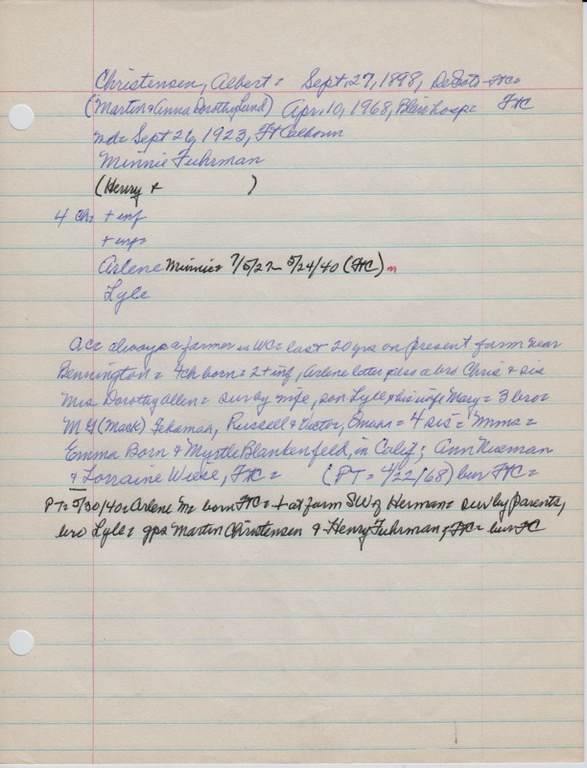 Christensen, Albert = Sept. 27, 1898, DeSoto - FtC=
(Martin & Anna Dorothy Lund) Apr. 10, 1968, Blair hosp= FtC
md= Sept 26, 1923, Ft Calhoun
Minnie Fuhrman
(Henry + )
4 ch= + inf
+ inf=
Arlene Minnie= 7/5/27 - 5/24/40 (FtC) m
Lyle
AC= always a farmer in WC= last 20 yrs on present farm near
Bennington= 4ch born= 2 + inf, Arlene later, also a bro Chris & sis
Mrs Dorothy Allen= sur by wife, son Lyle & his wife Mary= 3 bros=
M G (Mack) Tekamah, Russell & Victor, Omaha= 4 sis= Mmms=
Emma Born & Myrtle Blankenfeld, in Calif; Ann Nieman
& Lorraine Wiese, FtC= (PT= 4/22/68) bur FtC=
PT= 5/30/40= Arlene M= born FtC= + at farm SW of Herman= sur by parents,
bro Lyle= gps Martin Christensen & Henry Fuhrman, FtC= bur FC